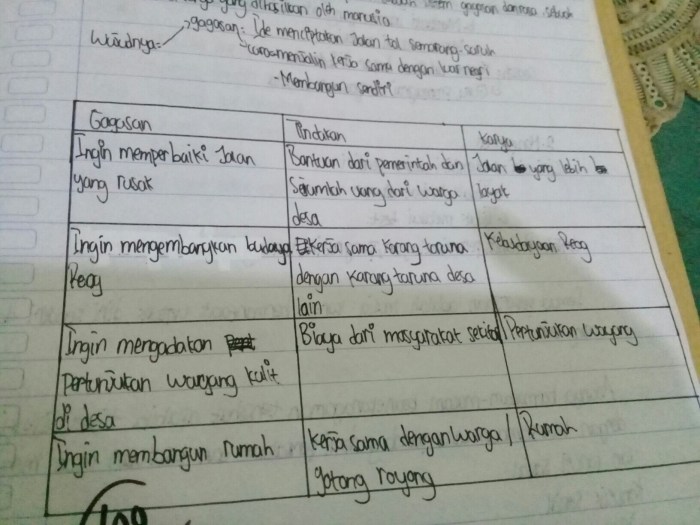 yang dihasilkan oleh manusia
Wujudnya: gagasan: Ide menciptakan Jalan tol semarang-
menjalin kerja sama dengan
- Membangun sendiri
Gagasan Tindakan Karya
Ingin memperbaiki Jalan
yang rusak
Bantuan dari pemerintah dan
Sejumlah uang dari warga
desa
Jalan yang lebih
layak
Ingin mengembangkan budaya
Reog
Kerja sama karang taruna
dengan karang taruna desa
lain
Reog
Ingin mengadakan
Pertunjukan wayang kulit
di desa
Biaya dari masyarakat
Pertunjukan wayang
Ingin membangun rumah
Kerja sama dengan warga /
gotong royong
Rumah
100